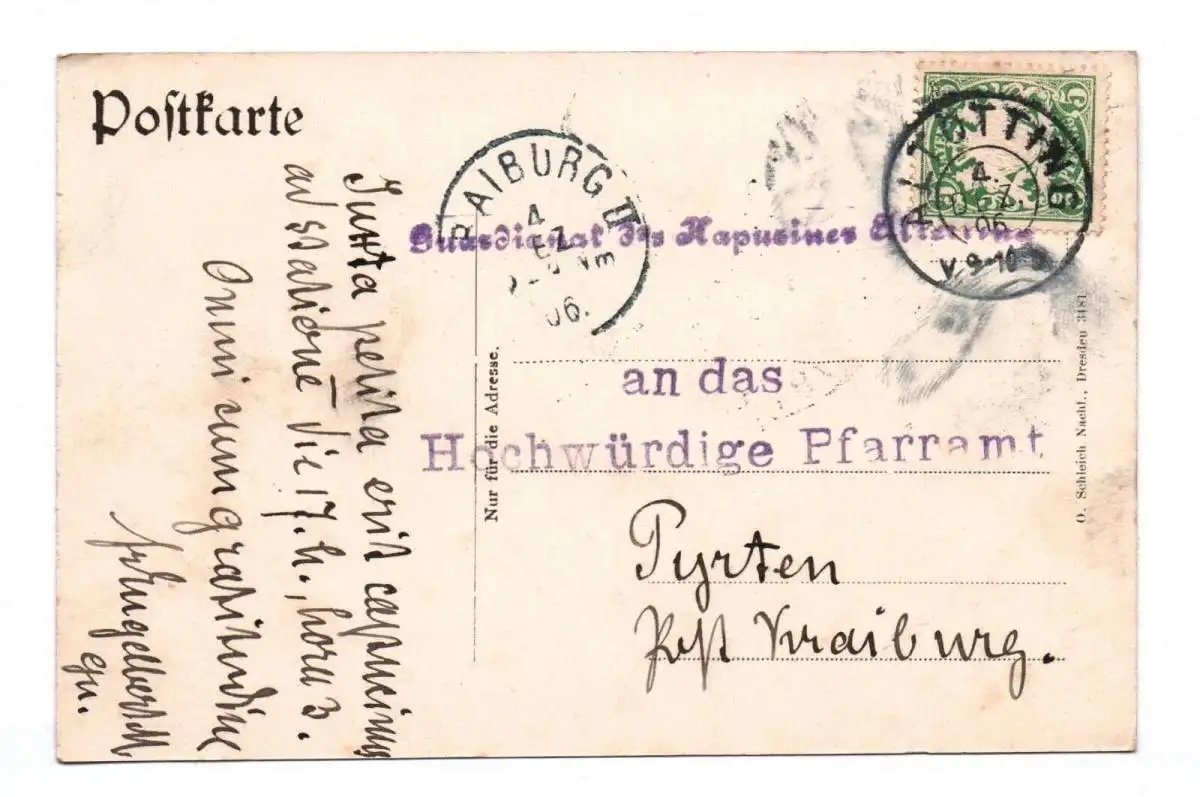 Poſtkarte
ALTÖTTING
4.
DEZ.
06
V.9-10
5
RAIBURG II
4
EZ
Nm
06.
Guardianat des Kapuziner
an das
Hochwürdige Pfarramt
Pyrten
Post Kraiburg.
Nur für die Adresse.
O. Schleich Nachf., Dresden 3481
Juxta petita erit capucinus
ad stationē die 17. h., hora 3.
Omni cum gratitudine